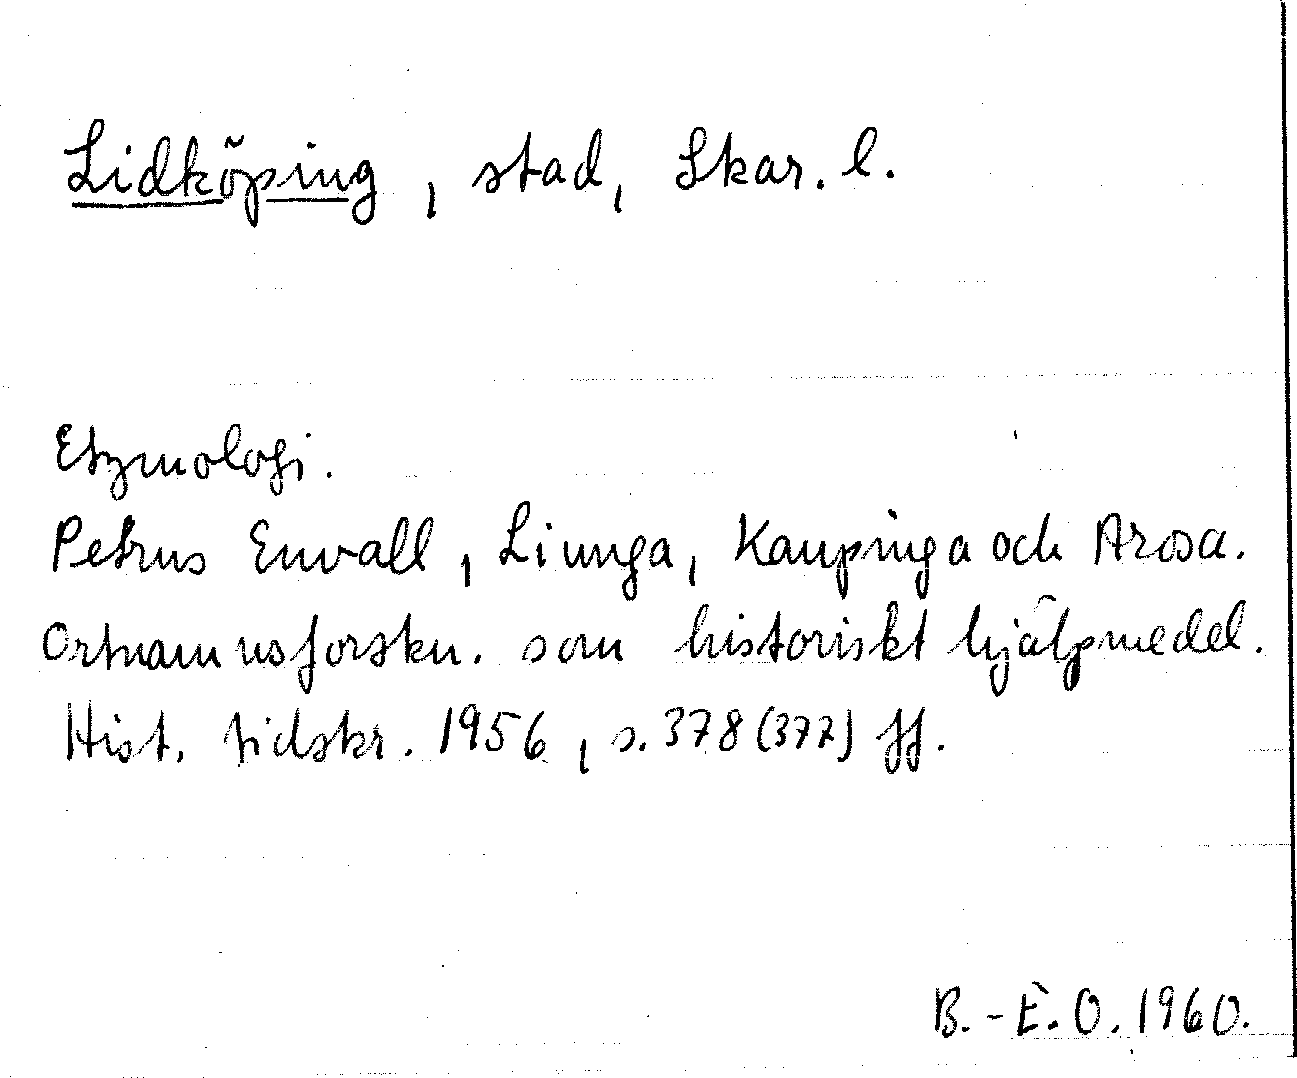 Lidköping, stad, Skar. l.
Etymologi.
Petrus Envall, Liunga, Kaupinga och Arosa.
Ortnamnsforskn. som historiskt hjälpmedel.
Hist. tidskr. 1956, s. 378 (377) ff.
B.-E. O. 1960.